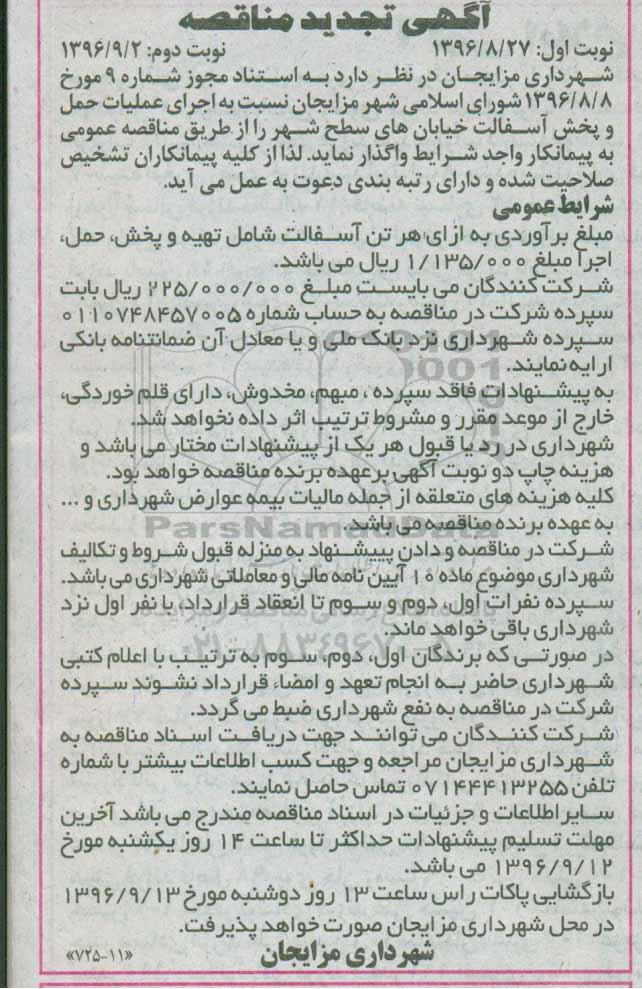 آگهی تجدید مناقصه
نوبت اول: ۱۳۹۶/۸/۲۷ نوبت دوم: ۱۳۹۶/۹/۲
شهرداری مزایجان در نظر دارد به استناد مجوز شماره ۹ مورخ
۱۳۹۶/۸/۸ شورای اسلامی شهر مزایجان نسبت به اجرای عملیات حمل
و پخش آسفالت خیابان های سطح شهر را از طریق مناقصه عمومی
به پیمانکار واجد شرایط واگذار نماید. لذا از کلیه پیمانکاران تشخیص
صلاحیت شده و دارای رتبه بندی دعوت به عمل می آید.
شرایط عمومی
مبلغ برآوردی به ازای هر تن آسفالت شامل تهیه و پخش، حمل،
اجرا مبلغ ۱/۱۳۵/۰۰۰ ریال می باشد.
شرکت کنندگان می بایست مبلغ ۲۲۵/۰۰۰/۰۰۰ ریال بابت
سپرده شرکت در مناقصه به حساب شماره ۰۱۱۰۷۴۸۴۵۷۰۰۵
سپرده شهرداری نزد بانک ملی و یا معادل آن ضمانتنامه بانکی
ارایه نمایند.
به پیشنهادات فاقد سپرده ، مبهم، مخدوش، دارای قلم خوردگی،
خارج از موعد مقرر و مشروط ترتیب اثر داده نخواهد شد.
شهرداری در رد یا قبول هر یک از پیشنهادات مختار می باشد و
هزینه چاپ دو نوبت آگهی بر عهده برنده مناقصه خواهد بود.
کلیه هزینه های متعلقه از جمله مالیات بیمه عوارض شهرداری و ...
به عهده برنده مناقصه می باشد.
ParsNamadData
شرکت در مناقصه و دادن پیشنهاد به منزله قبول شروط و تکالیف
شهرداری موضوع ماده ۱۰ آیین نامه مالی و معاملاتی شهرداری می باشد.
سپرده نفرات اول، دوم و سوم تا انعقاد قرارداد، با نفر اول نزد
شهرداری باقی خواهد ماند.
۰۲۱-۸۸۳۴۹۶۷۰-
در صورتی که برندگان اول، دوم، سوم به ترتیب با اعلام کتبی
شهرداری حاضر به انجام تعهد و امضاء قرارداد نشوند سپرده
شرکت در مناقصه به نفع شهرداری ضبط می گردد.
شرکت کنندگان می توانند جهت دریافت اسناد مناقصه به
شهرداری مزایجان مراجعه و جهت کسب اطلاعات بیشتر با شماره
تلفن ۰۷۱۴۴۴۱۳۲۵۵ تماس حاصل نمایند.
سایر اطلاعات و جزئیات در اسناد مناقصه مندرج می باشد آخرین
مهلت تسلیم پیشنهادات حداکثر تا ساعت ۱۴ روز یکشنبه مورخ
۱۳۹۶/۹/۱۲ می باشد.
بازگشایی پاکات راس ساعت ۱۳ روز دوشنبه مورخ ۱۳۹۶/۹/۱۳
در محل شهرداری مزایجان صورت خواهد پذیرفت.
شهرداری مزایجان
«۷۲۵-۱۱»